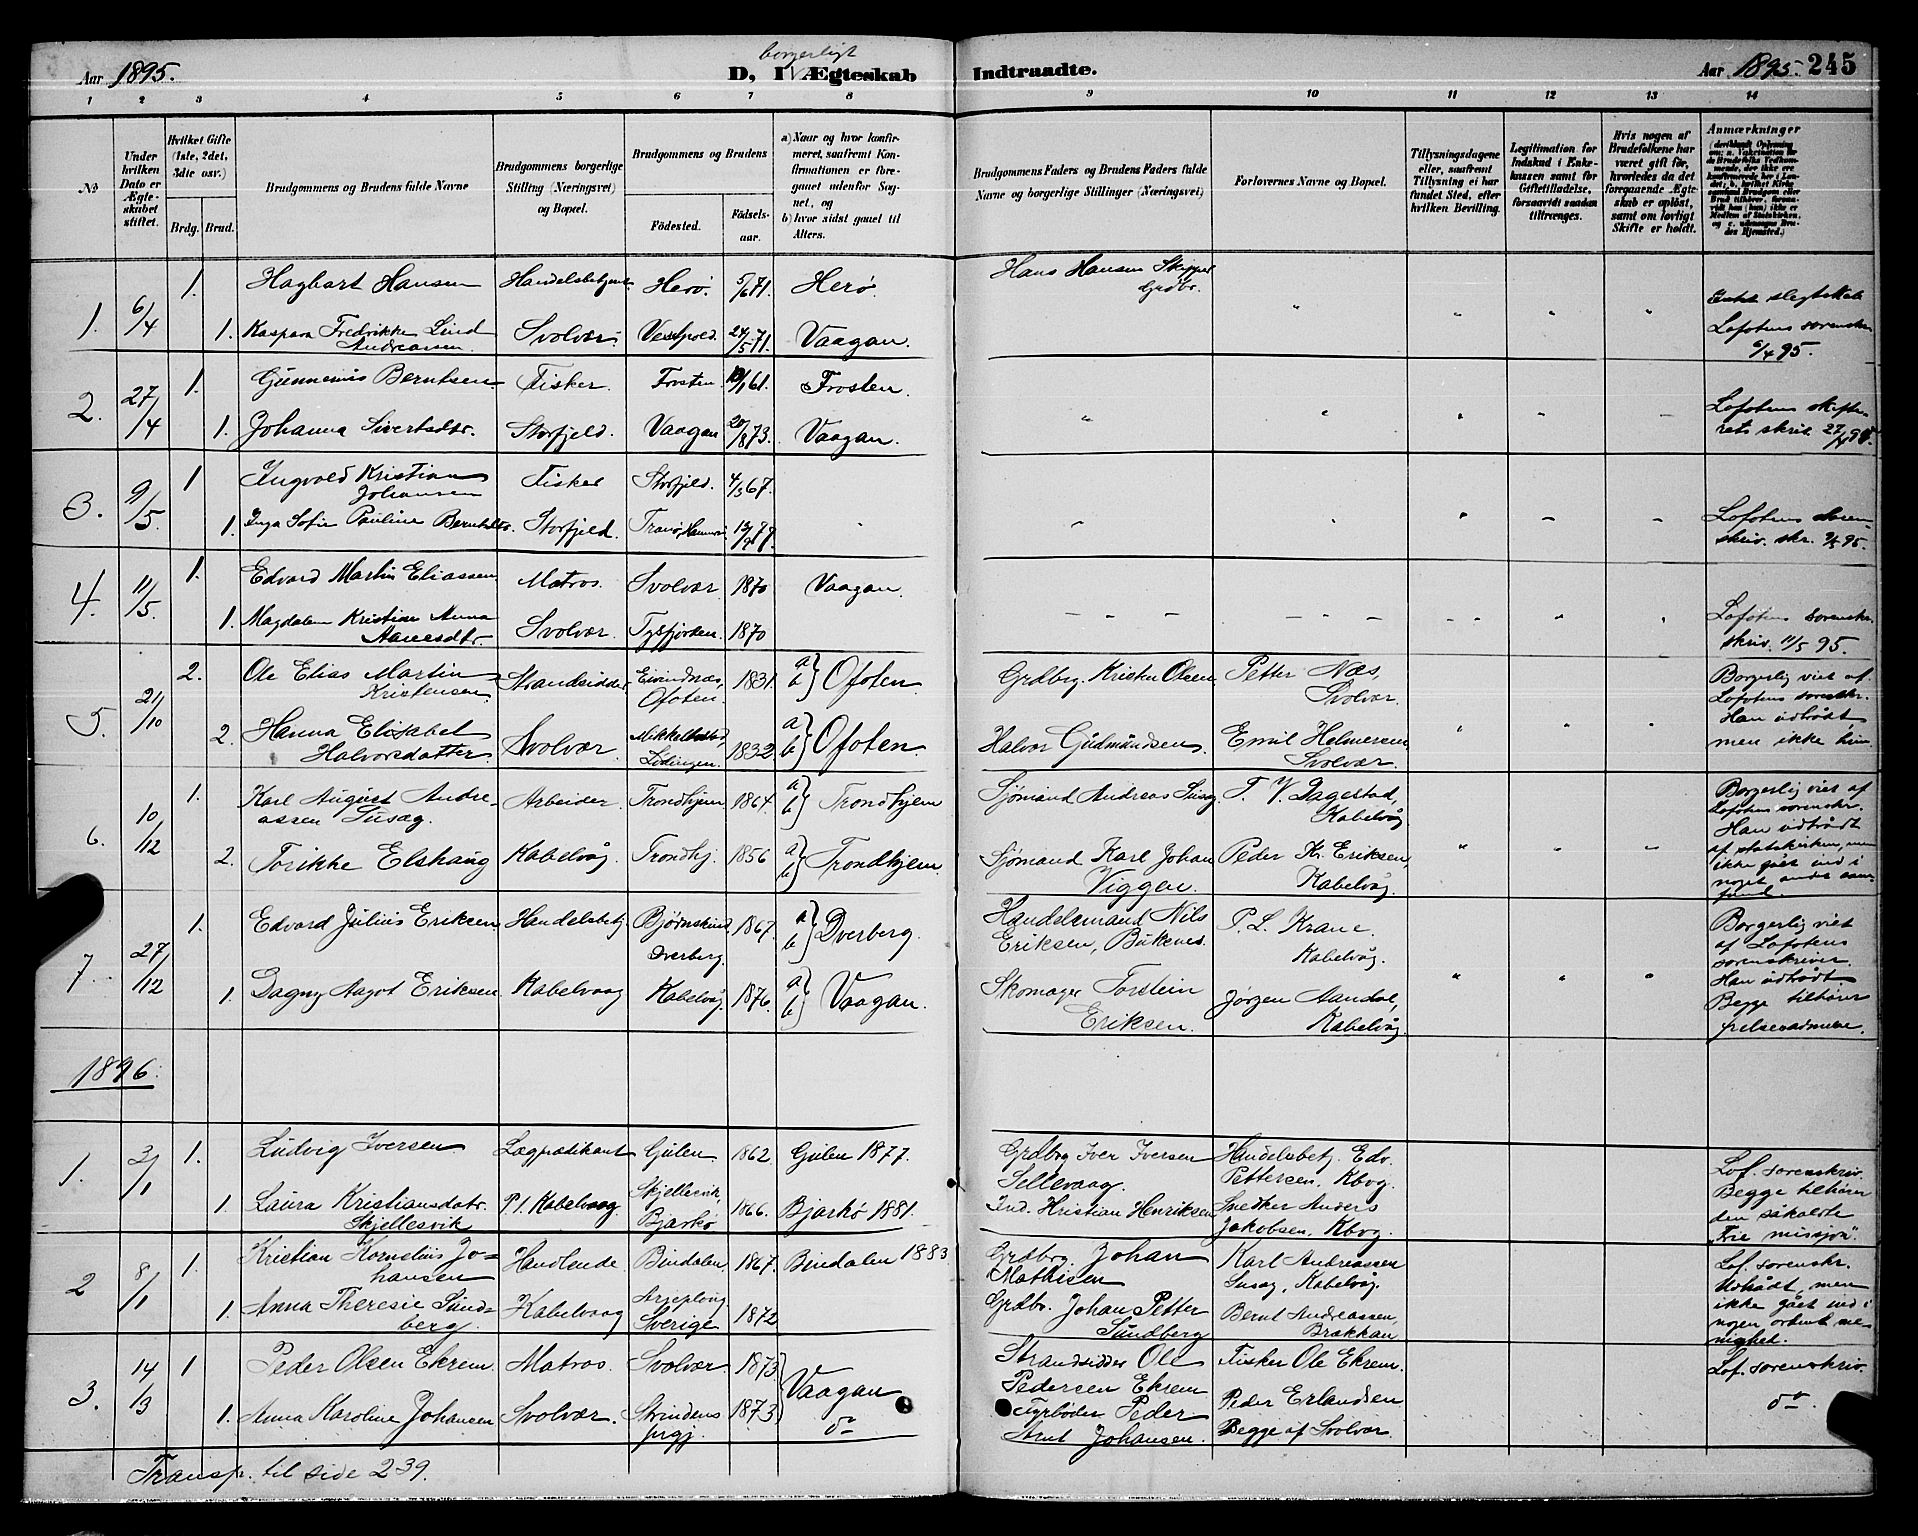 Aar 1895.
D, I Ægteskab
borgerligt
Indtraadte.
Aar 1895. 245
1 2 3 4 5 6 7 8 9 10 11 12 13 14
No
Under hvilken Dato er Ægteskabet stiftet.
Hvilket Gifte (1ste, 2det, 3die osv.)
Brdg. Brud.
Brudgommens og Brudens fulde Navne
Brudgommens borgerlige Stilling (Næringsvei) og Bopæl.
Brudgommens og Brudens
Fødested.
Fødselsaar.
a) Naar og hvor konfirmeret, saafremt Konfirmationen er foregaaet udenfor Sognet, og
b) hvor sidst gaaet til Alters.
Brudgommens Faders og Brudens Faders fulde Navne og borgerlige Stillinger (Næringsvei)
Forlovernes Navne og Bopæl.
Tillysningsdagene eller, saafremt Tillysning ei har fundet Sted, efter hvilken Bevilling.
Legitimation for Indskud i Enkekassen samt for Giftetilladelse, forsaavidt saadan tiltrænges.
Hvis nogen af Brudefolkene har været gift før, hvorledes da det foregaaende Ægteskab er opløst, samt om lovligt Skifte er holdt.
Anmærkninger
1. 6/4 1. Hagbart Hansen Handelsbetjent Herø. 5/6 71. Herø. Hans Hansen Skipper Grdbr.
1. Kaspara Fredrikke Lind Andreassen. Svolvær 24/5 71. Vaagan.
Lofotens sorenskr. 6/4 95.
2. 27/4 1. Gunnenius Berntsen Fisker. Frosten 61. Frosten.
1. Johanna Sivertsdtr. Storfjeld. Vaagan 20/8 73. Vaagan.
Lofotens
3. 9/5 1 Ingvald Kristian Johansen Fisker Storfjeld. 4/3 67.
1. Inga Sofie Pauline Berntsdtr. Storfjeld. Tranø,
Lofotens sorenskriv. skr. 9/5 95.
4. 11/5 1. Edvard Martin Eliassen Matros. Svolvær 1870 Vaagan.
1. Magdalena Kristine Anna Svolvær. Tysfjorden. 1870
Lofotens sorenskr. skriv. 11/5 95.
5. 21/10 2. Ole Elias Martin Kristensen Strandsidder Ofoten. 1831. a b } Ofoten. Grdbrg. Kristen Olsen. Petter Næs, Svolvær.
2. Hanna Elisabet Halvorsdatter. Svolvær Lødingen. 1832 a b } Ofoten. Halvor Gudmundsen. Emil Helmersen Svolvær.
Borgerlig viet af Lofotens sorenskr. Han udtrådt, men ikke hun.
6. 10/12 1. Karl August Andreassen Susæg. Arbeider. Trondhjem 1864. a b } Trondhjem Sjømand Andreas Susæg T. V. Dagestad, Kabelvåg.
2. Torikke Elshaug Kabelvåg. Trondhj. 1856 a b } Trondhjem. Sjømand Karl Johan Viggen. Peder Kr. Eriksen, Kabelvåg.
Borgerlig viet af Lofotens sorenskr. Han udtrådt af statskirken, men ikke gået ind i noget andet samfund.
7. 27/12 1. Edvard Julius Eriksen Handelsbetj. Bjørnskind Dverberg. 1867. a b } Dverberg. Handelsmand Nils Eriksen, Bukenes. P. L. Krane. Kabelvåg.
1. Dagny Aagot Eriksen Kabelvaag Kabelvåg. 1876. a b } Vaagan. Skomager Torstein Eriksen. Jørgen Aandal, Kabelvåg.
Borgerlig viet af Lofotens sorenskriver. Han udtrådt Begge tilhører frelsesarmeen.
1896.
1. 3/1 1. Ludvig Iversen Lægprædikant Gulen. 1862. Gulen 1877. Grdbrg Iver Iversen Sellevaag. Handelsbetj. Edv. Pettersen, Kbvg.
1. Laura Kristiansdatr. Skjellesvik P.t. Kabelvaag Skjellesvik, Bjarkø 1866. Bjarkø 1881. Ind. Kristian Henriksen Snedker Anders Jakobsen, Kbvg.
Lof. sorenskriv. Begge tilhører den såkaldte "Frie missjon".
2 8/1 1. Kristian Kornelius Johansen Handlende Bindalen. 1867. Bindalen 1883 Grdbrg. Johan Mathisen Karl Andreassen Susæg, Kabelvåg.
1. Anna Theresie Sundberg. Kabelvaag Arjeploug Sverige 1872 Grdbr. Johan Petter Sundberg Bernt Andreassen, Brakkan
Lof. sorenskr. Udtrådt, men ikke gået ind i nogen ordnet menighet.
3. 14/13 1 Peder Olsen Ekrem. Matros. Svolvær. 1873 Vaagan Strandsidder Ole Pedersen Ekrem Fisker Ole Ekrem.
1. Anna Karoline Johansen Svolvær. Strindens prgj. 1873 do Fyrbøder Peder Arnt Johansen. Peder Erlandsen Begge af Svolvær.
Lof. sorenskriv. do.
Transp. til side 239.